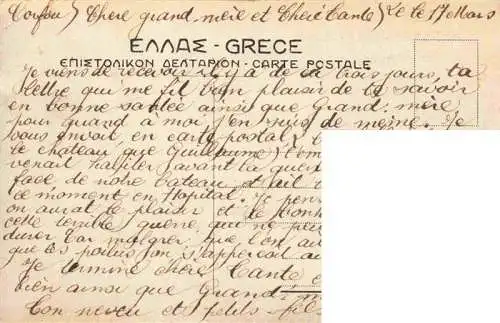 Corfou / Chère grand, mère et Chère Tante / Le 17 Mars
ΕΛΛΑΣ - GRECE
ΕΠΙΣΤΟΛΙΚΟΝ ΔΕΛΤΑΡΙΟΝ - CARTE POSTALE
Je viens de recevoir il y a de ca trois jours, ta
lettre qui me fit bien plaisir de te savoir
en bonne santée ainsi que Grand. mère,
pour quand à moi j'en suis de meme. Je
vous envoit, en carte postal
le chateau que Guillaume
venait habiter avant la guer
face de notre bateau et
ce moment en Hopital. Je pen
on aurat le plaisir et le bonh
cette terrible guerre, qui ne peu
durer car malgrer que l'on
que les poilus s'apperçoit au
Je termine chère Tante e
bien ainsi que Grand, m
Ton neveu et petits fils